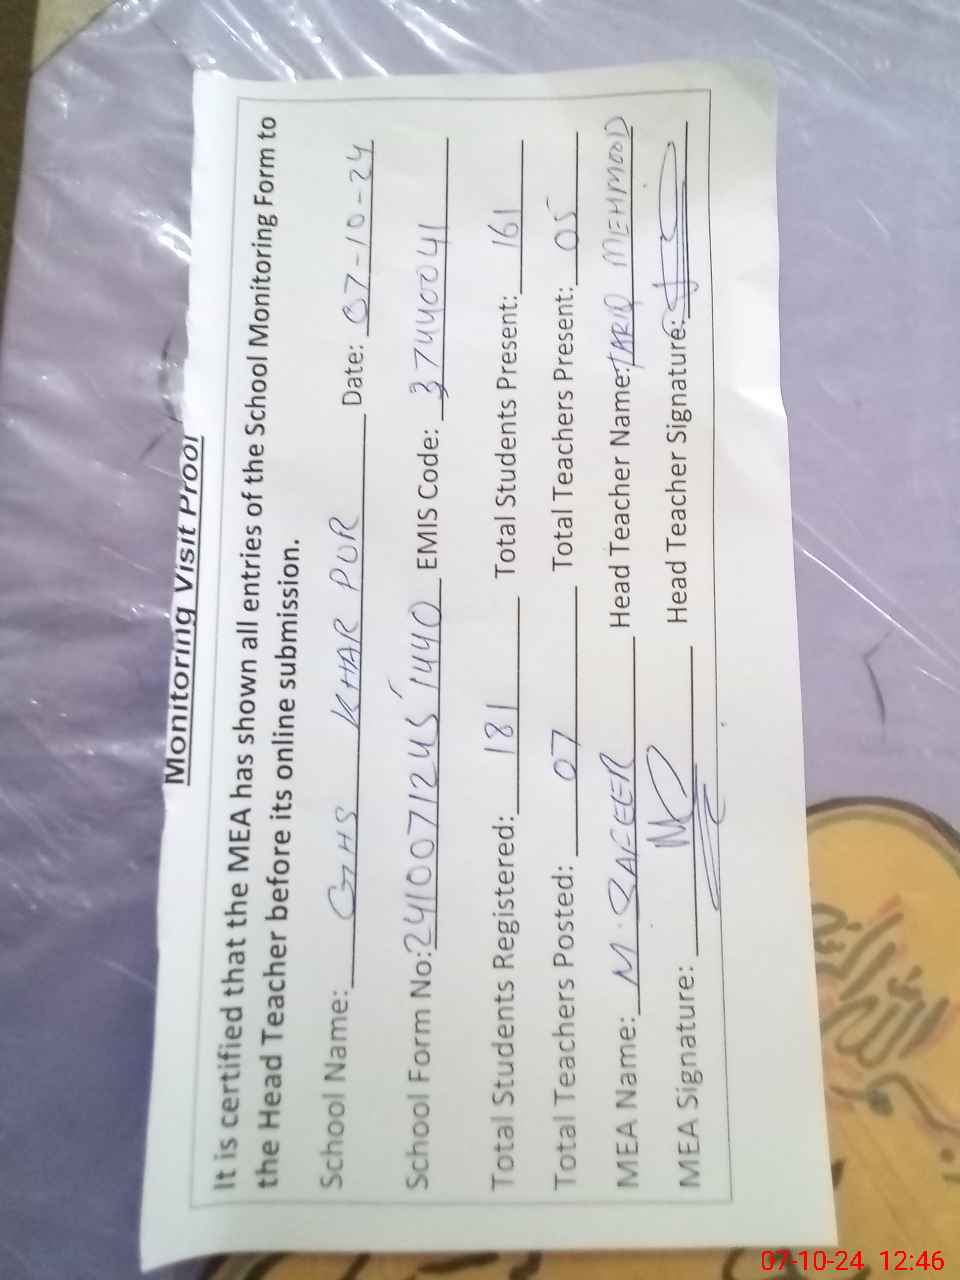 Monitoring Visit Proof
It is certified that the MEA has shown all entries of the School Monitoring Form to
the Head Teacher before its online submission.
School Name: GHS KHAR PUR Date: 07-10-24
School Form No: 24100712451440 EMIS Code: 37440041
Total Students Registered: 181 Total Students Present: 161
Total Teachers Posted: 07 Total Teachers Present: 05
MEA Name: M. SAFEER Head Teacher Name: TARIQ MEHMOOD
MEA Signature: Head Teacher Signature:
07-10-24 12:46